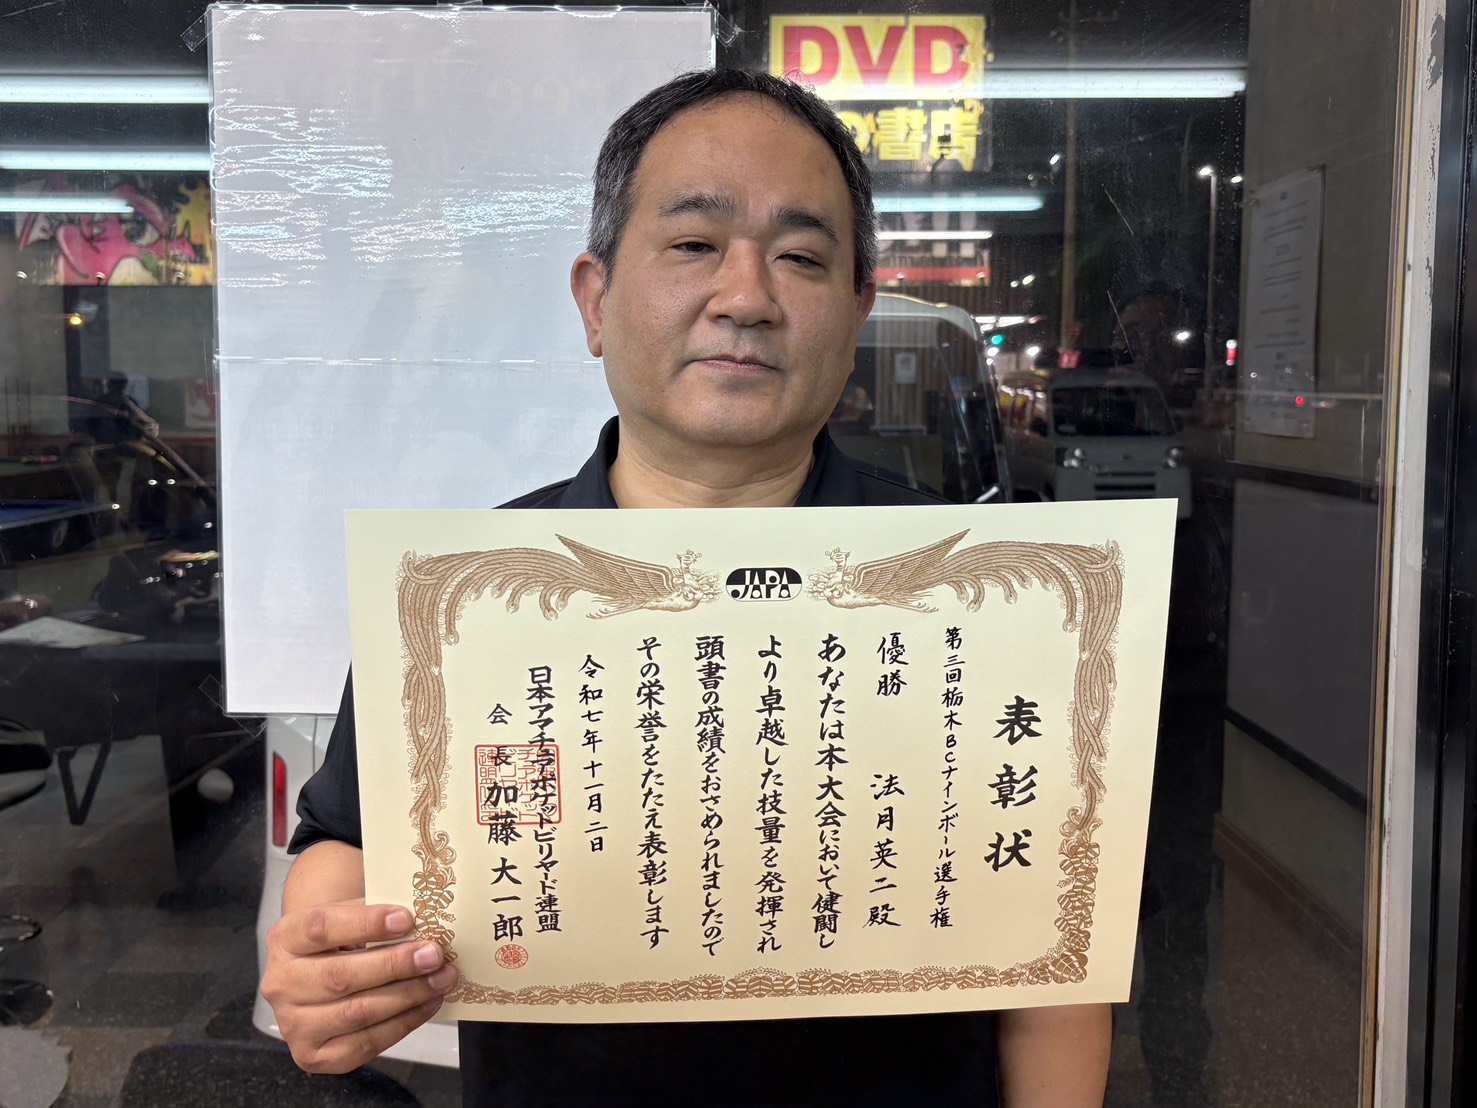 DVD
JAPA
表彰状
第三回栃木BCナインボール選手権
優勝 法月英二殿
あなたは本大会において健闘し
より卓越した技量を発揮され
頭書の成績をおさめられましたので
その栄誉をたたえ表彰します
令和七年十一月二日
日本アマチュアポケットビリヤード連盟
会長 加藤大一郎